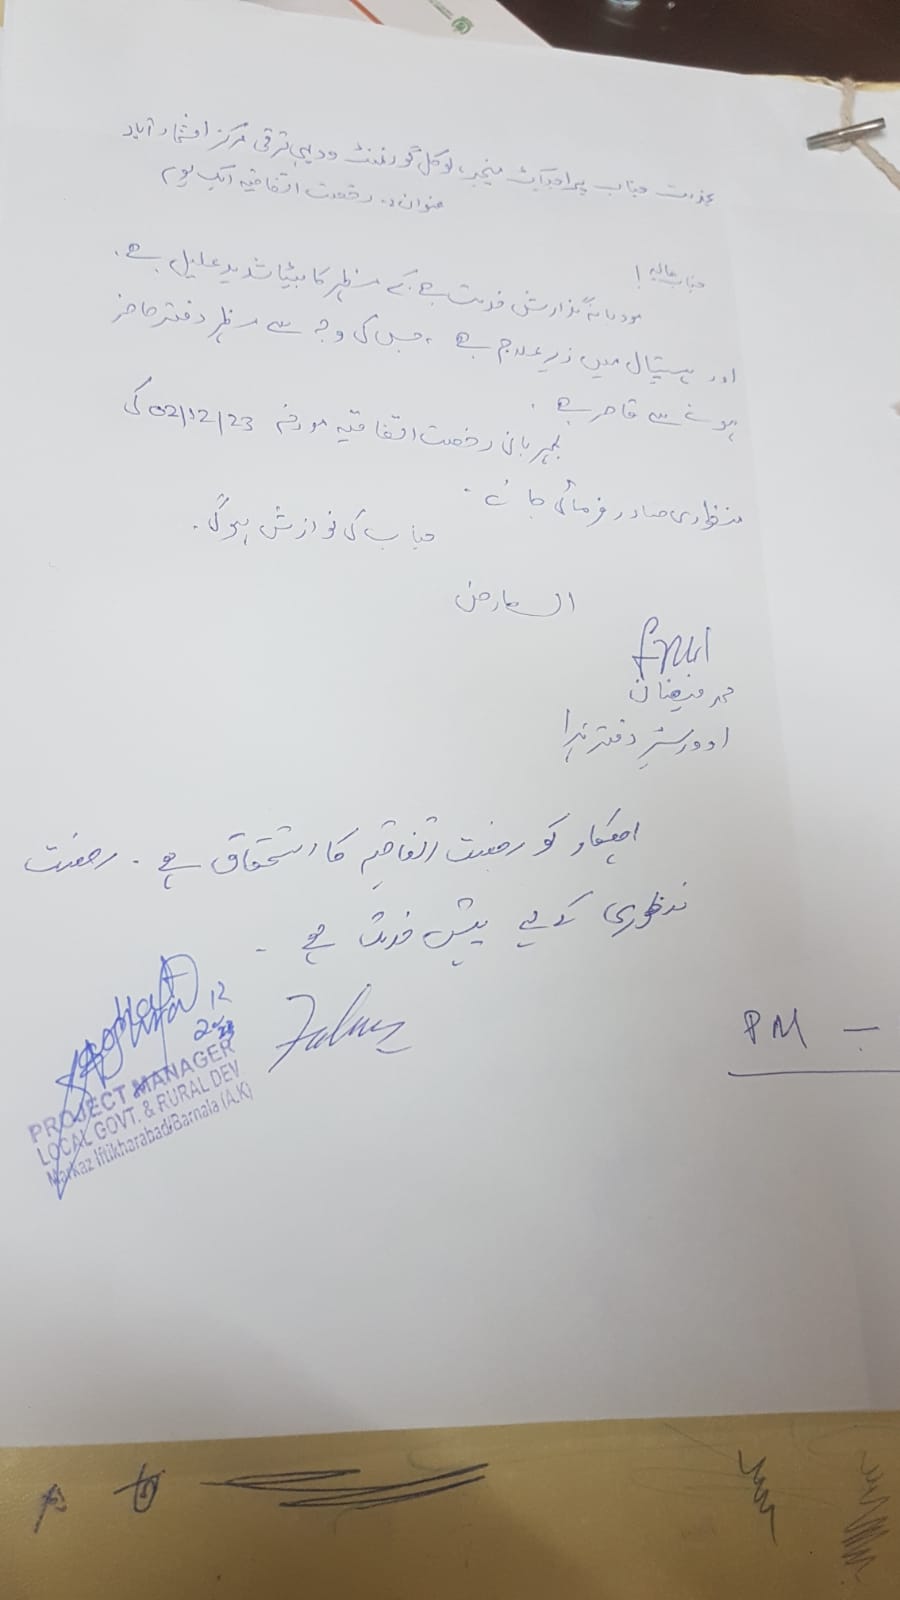 بخدمت جناب پراجیکٹ منیجر، لوکل گورنمنٹ و دیہی ترقی مرکز افتخار آباد
عنوان:۔ رخصت اتفاقیہ ایک یوم
جناب عالیہ !
مودبانہ گذارش خدمت ہے کے مظہر کا بیٹا شدید علیل ہے۔
اور ہسپتال میں زیر علاج ہے ، جس کی وجہ سے مظہر دفتر حاضر
ہونے سے قاصر ہے ۔
بمہربانی رخصت اتفاقیہ مورخہ 02/12/23 کی
منظوری صادر فرمائی جائے ۔
جناب کی نوازش ہوگی۔
العارض
محمد فیضان
اوورسیئر دفتر ہذا
اہلکار کو رخصت اتفاقیہ کا استحقاق ہے ۔ رخصت
منظوری کے لیے پیش خدمت ہے ۔
PM —
12
PROJECT MANAGER
LOCAL GOVT. & RURAL DEV
Markaz Iftikharabad/Barnala (A.K)